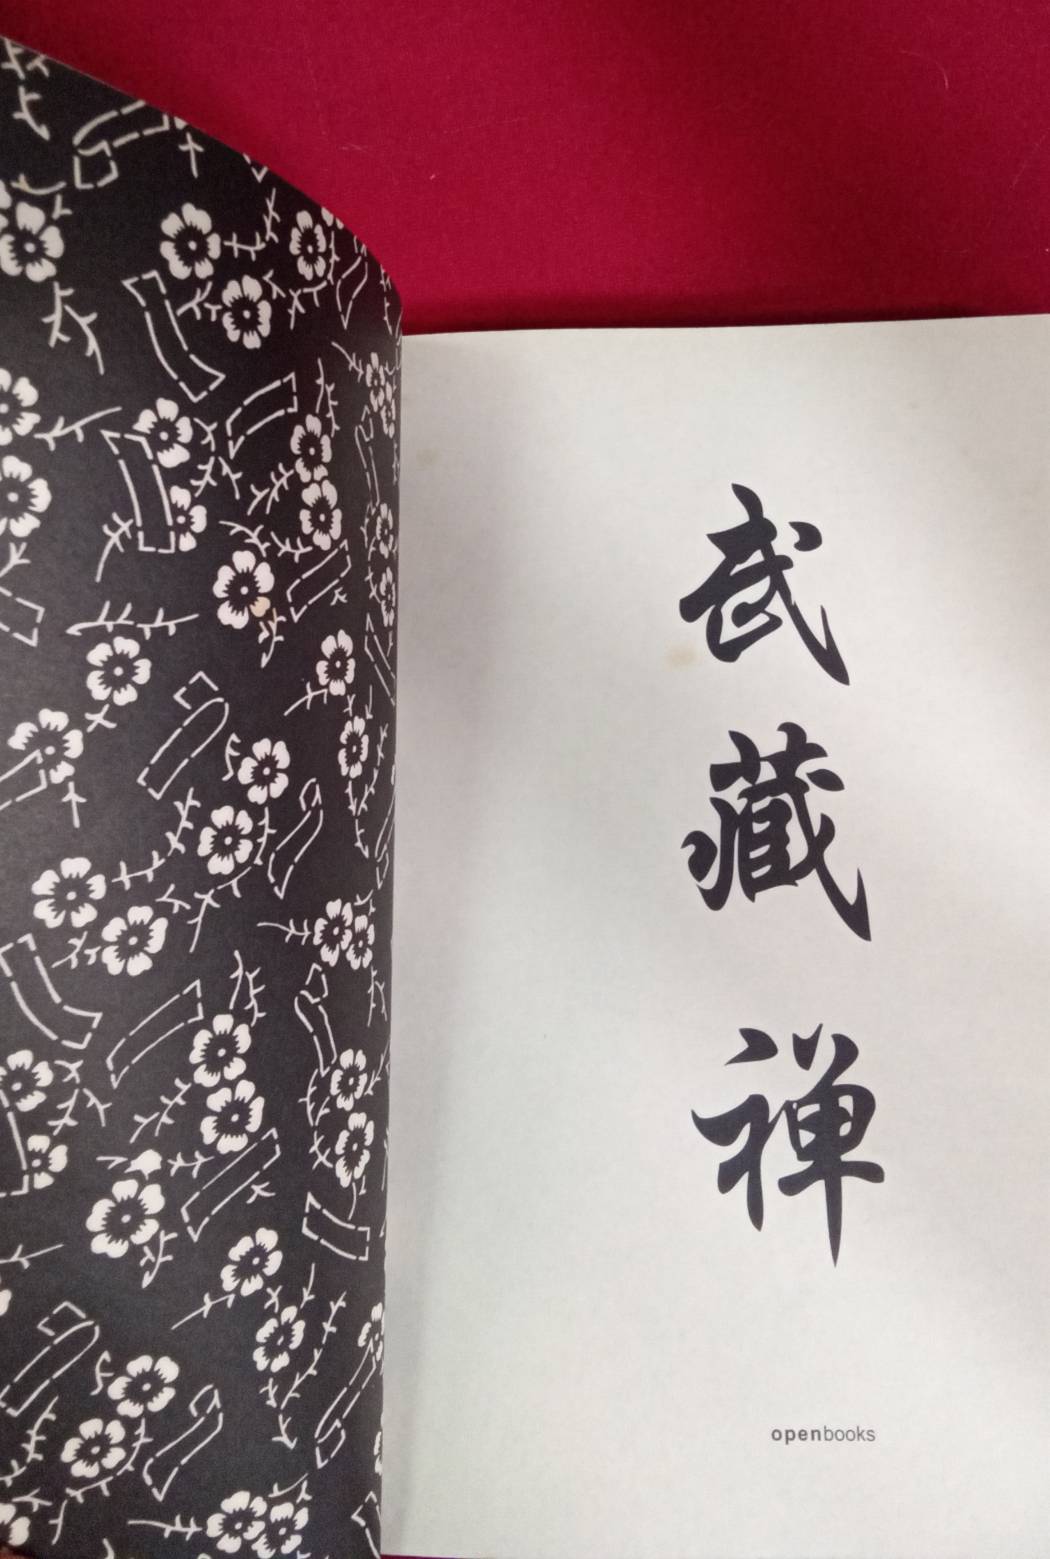 武藏禅
openbooks